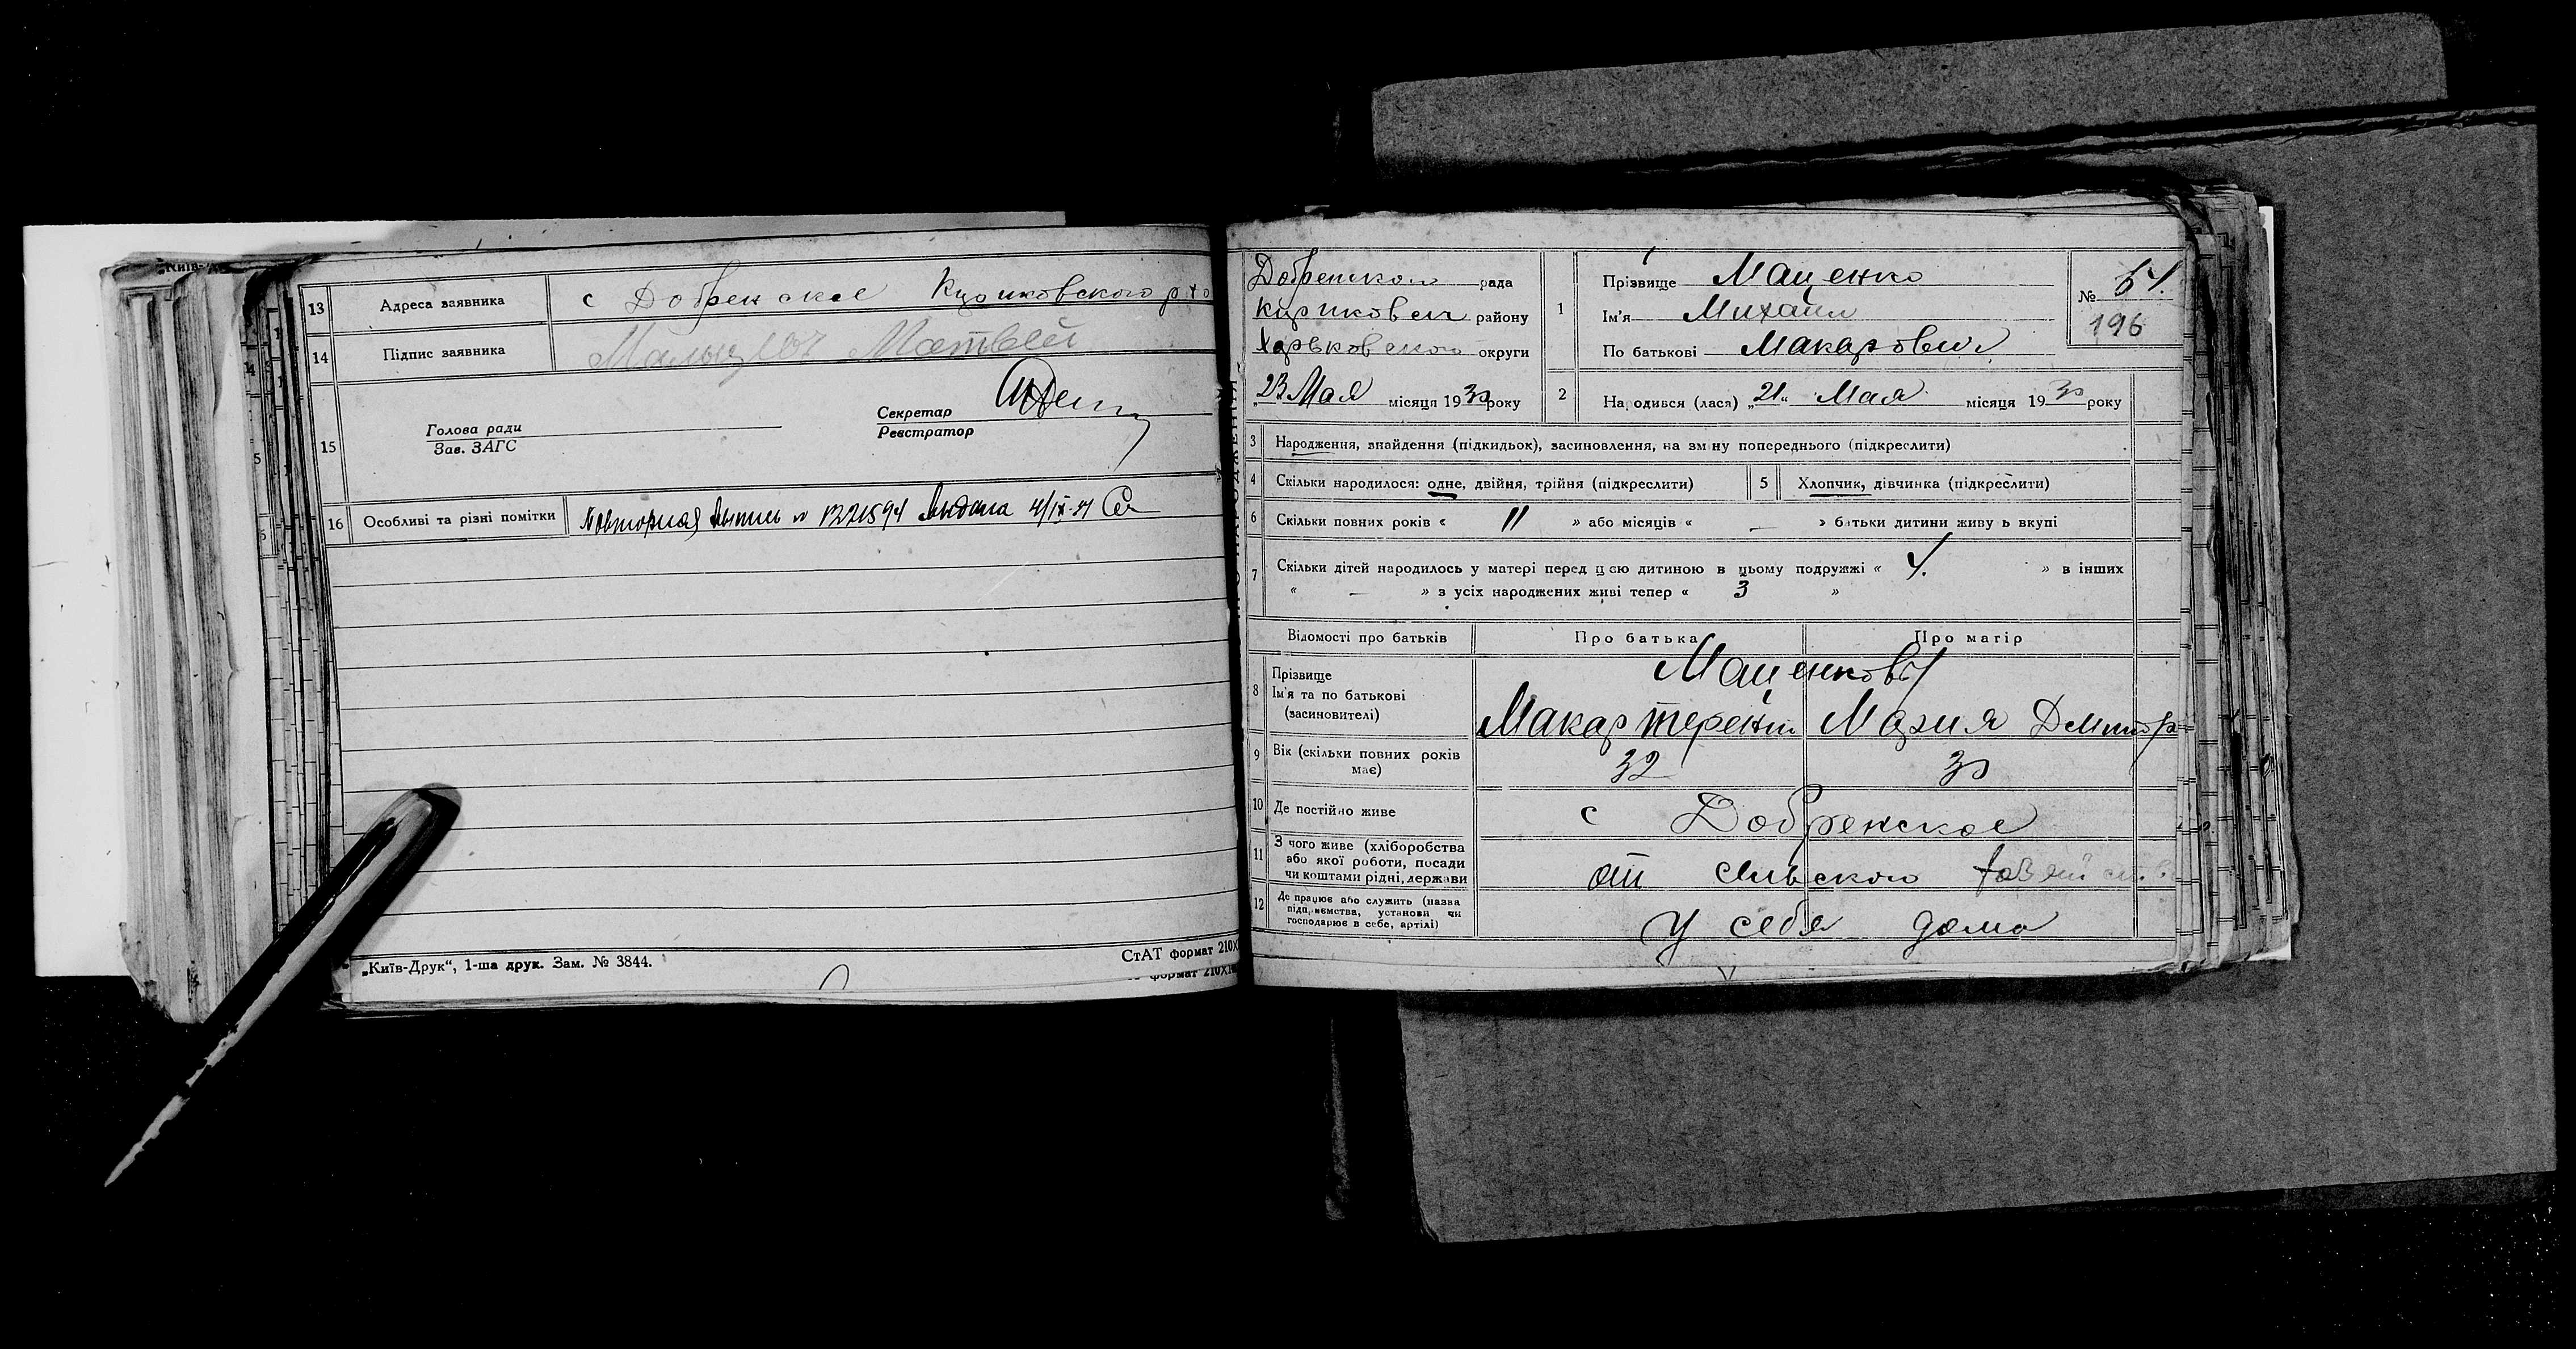 13 Адреса заявника с Добренское
14 Підпис заявника Матвей
15 Голова ради
Зав. ЗАГС
Секретар
Реєстратор
16 Особливі та різні помітки Повторная № 1221594 Выдана
„Київ-Друк“, 1-ша друк. Зам. № 3844.
СтАТ формат 210X
формат 210X
рада
району
Харьковского округи
23 Мая місяця 1930 року
1 Прізвище Маценко
Ім'я Михаил
По батькові Макарович
№ 64.
196
2 Народився (лася) „21“ Мая місяця 1930 року
3 Народження, знайдення (підкидьок), засиновлення, на зміну попереднього (підкреслити)
4 Скільки народилося: одне, двійня, трійня (підкреслити)
5 Хлопчик, дівчинка (підкреслити)
6 Скільки повних років « 11 » або місяців « — » батьки дитини живу ь вкупі
7 Скільки дітей народилось у матері перед цією дитиною в цьому подружжі « 4. » в інших
« — » з усіх народжених живі тепер « 3 »
Відомості про батьків Про батька Про матір
8 Прізвище Маценковы
Ім'я та по батькові
(засиновителі) Макар Терент Мария Дмитр
9 Вік (скільки повних років
має) 32 30
10 Де постійно живе с Добренское
11 З чого живе (хліборобства
або якої роботи, посади
чи коштами рідні, держави от
12 Де працює або служить (назва
підприємства, установи чи
господарює в себе, артілі) у себя дома